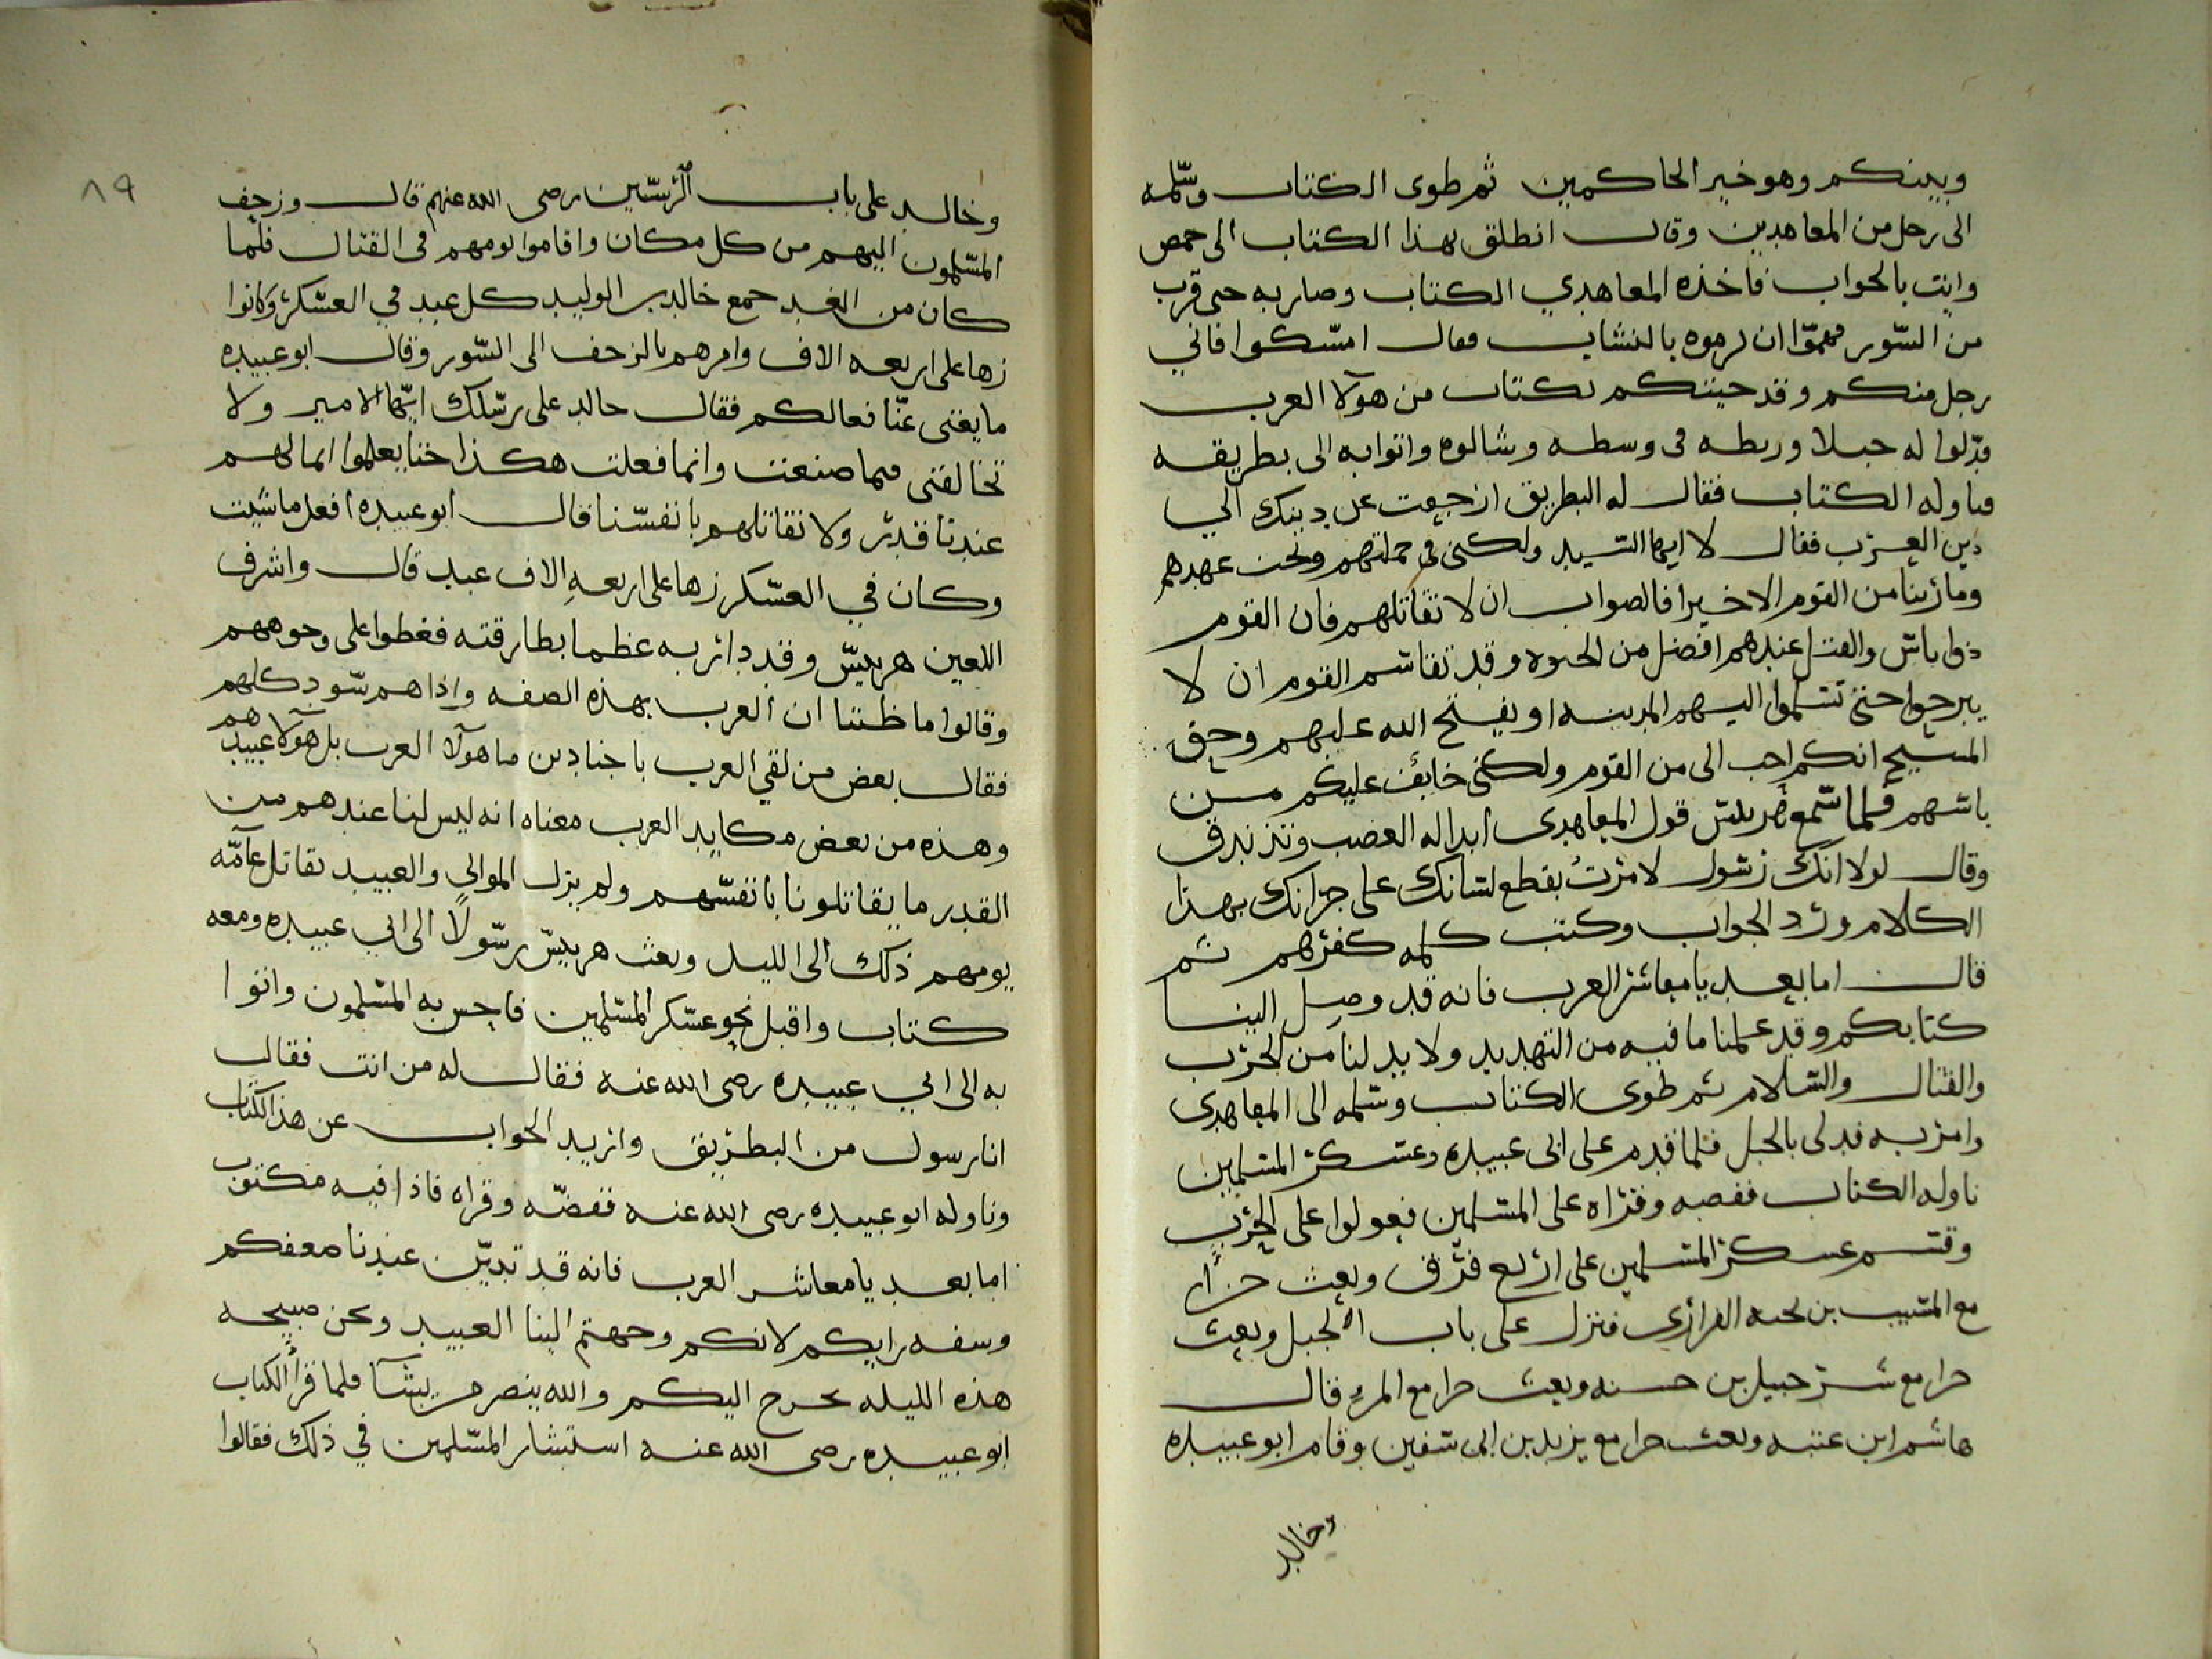 وبينكم وهو خير الحاكمين ثم طوى الكتاب وسلمه
الى رجل من المعاهدين وقال انطلق بهذا الكتاب الى حمص
وايت بالجواب فاخذه المعاهدي الكتاب وصار به حتى قرب
من السور فهموا ان يرموه بالنشاب فقال امسكوا فاني
رجل منكم وقد جيتكم بكتاب من هولا العرب
فدلوا له حبلا وربطه في وسطه وشالوه واتوا به الى بطريقه
فناوله الكتاب فقال له البطريق ارجعت عن دينك الي
دين العرب فقال لا ايها السيد ولكني في حملتهم وتحت عهدهم
وما راينا من القوم الا خيرا فالصواب ان لا تقاتلهم فان القوم
ذوا باس والقتل عندهم افضل من الحيوه وقد تقاسم القوم ان لا
يبرحوا حتى تسلموا اليهم المدينه او يفتح الله عليهم وحق
المسيح انكم احب الى من القوم ولكني خايف عليكم من
باسهم فلما سمع هربيس قول المعاهدى ابدا له الغضب وتزندق
وقال لولا انك رسول لامرت بقطع لسانك على جراتك بهذا
الكلام ورد الجواب وكتب كلمه كفرهم ثم
قال اما بعد يا معاشر العرب فانه قد وصل الينا
كتابكم وقد علمنا ما فيه من التهديد ولا بد لنا من الحرب
والقتال والسلام ثم طوى الكتاب وسلمه الى المعاهدى
وامر به فدلى بالحبل فلما قدم على ابى عبيده وعسكر المسلمين
ناوله الكتاب ففضه وقراه على المسلمين فعولوا على الحرب
وقسم عسكر المسلمين على اربع فرق وبعث
مع المسيب بن نجيه الفزارى فنزل على باب الجبل وبعث
مع شرحبيل بن حسنه وبعث مع قال
هاشم ابن عتبه وبعث مع يزيد بن ابى سفين وقام ابو عبيده
وخالد
٨٩
وخالد على باب الرستين رضى الله عنهم قال وزحف
المسلمون اليهم من كل مكان واقاموا يومهم في القتال فلما
كان من الغد جمع خالد بن الوليد كل عبد في العسكر وكانوا
زها على اربعه الاف وامرهم بالزحف الى السور وقال ابو عبيده
ما يغنى عنا فعالكم فقال خالد على رسلك ايها الامير ولا
تخالفنى فيما صنعت وانما فعلت هكذا حتا يعلموا انما لهم
عندنا قدر ولا نقاتلهم بانفسنا قال ابو عبيده افعل ما شيت
وكان في العسكر زها على اربعه الاف عبد قال واشرف
اللعين هربيس وقد دار به عظما بطارقته فغطوا على وجوههم
وقالوا ما ظننا ان العرب بهذه الصفه واذا هم سود كلهم
فقال بعض من لقي العرب باجنادين ما هولا العرب بل هولا عبيدهم
وهذه من بعض مكايد العرب معناه انه ليس لنا عندهم من
القدر ما يقاتلونا بانفسهم ولم يزل الموالي والعبيد تقاتل عامه
يومهم ذلك الى الليل وبعث هربيس رسولا الى ابي عبيده ومعه
كتاب واقبل نحو عسكر المسلمين فاحس به المسلمون واتوا
به الى ابي عبيده رضى الله عنه فقال له من انت فقال
انا رسول من البطريق واريد الجواب عن هذا الكتاب
وناوله ابو عبيده رضى الله عنه ففضه وقراه فاذا فيه مكتوب
اما بعد يا معاشر العرب فانه قد تبين عندنا ضعفكم
وسفه رايكم لانكم وجهتم الينا العبيد ونحن صبيحه
هذه الليله نخرج اليكم والله ينصر من يشآ فلما قرا الكتاب
ابو عبيده رضى الله عنه استشار المسلمين في ذلك فقالوا